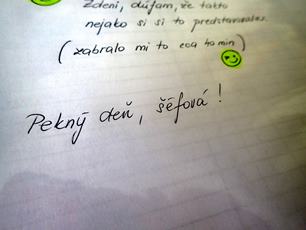 Zdeni, dúfam, že takto
nejako si si to predstavovala.
(zabralo mi to cca 40 min)
Pekný deň, šéfová!